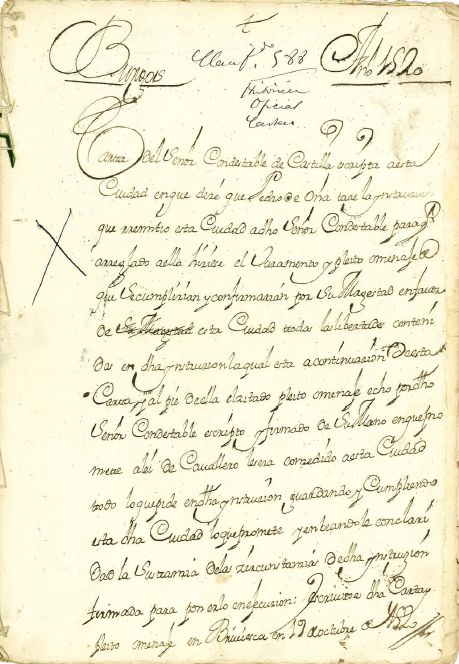 Burgos
Año 1520
Carta del Señor Condestable de Castilla escripta aesta
Ciudad enque dize que Pedro de Oña trae la ynstruzion
que rremitio esta Ciudad adho Señor Condestable para q
arreglado aella hiziese el Juramento y pleito omenaje
que Secumplirian y confirmarian por Su Magestad enfavor
de esta Ciudad todas las libertades conteni
das en dha ynstruzion laqual esta acontinuazion deesta
Carta y al pie deella elzitado pleito omenaje echo por dho
Señor Condestable escripto y firmado de Su Mano enque pro
mete a lei de Cavallero lesera conzedido aesta Ciudad
todo loquepide endha ynstruzion guardando y Cumpliendo
esta dha Ciudad loque promete y entrando le conclari
dad la Sustanzia delas zircunstanzias dedha ynstruzion
firmada para ponerlo enexecuzion: Escriviose dha Carta y
pleito omenaje en Briviesca en 19 de octubre de 1520